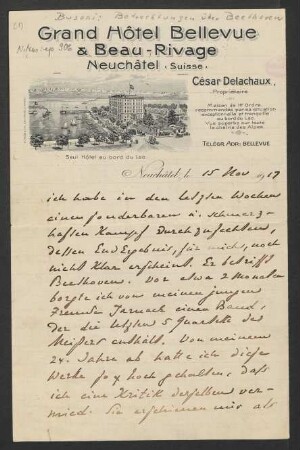 Busoni: Bemerkungen über Beethoven
Grand Hôtel Bellevue
& Beau-Rivage
Neuchâtel (Suisse)
César Delachaux,
Propriétaire
Maison de 1er Ordre,
recommandée par sa situation
exceptionnelle et tranquille
au bord du Lac.
Vue superbe sur toute
la chaîne des Alpes
Télégr. Adr.: Bellevue
Seul Hôtel au bord du Lac
Neuchâtel, le 15 Nov 1917
ich habe in den letzten Wochen
einen sonderbaren u. schmerz-
haften Kampf durchzufechten,
dessen Endergebnis, für mich, noch
nicht klar erscheint. Es betrifft
Beethoven. Vor etwa 2 Monaten
borgte ich von meinem jungen
Freunde Jarnach einen Band,
der die letzten 5 Quartette des
Meisters enthält. Von meinem
24. Jahre ab hatte ich diese
Werke so hoch gehalten, daß
ich eine Kritik derselben ver-
mied: Sie erschienen mir als